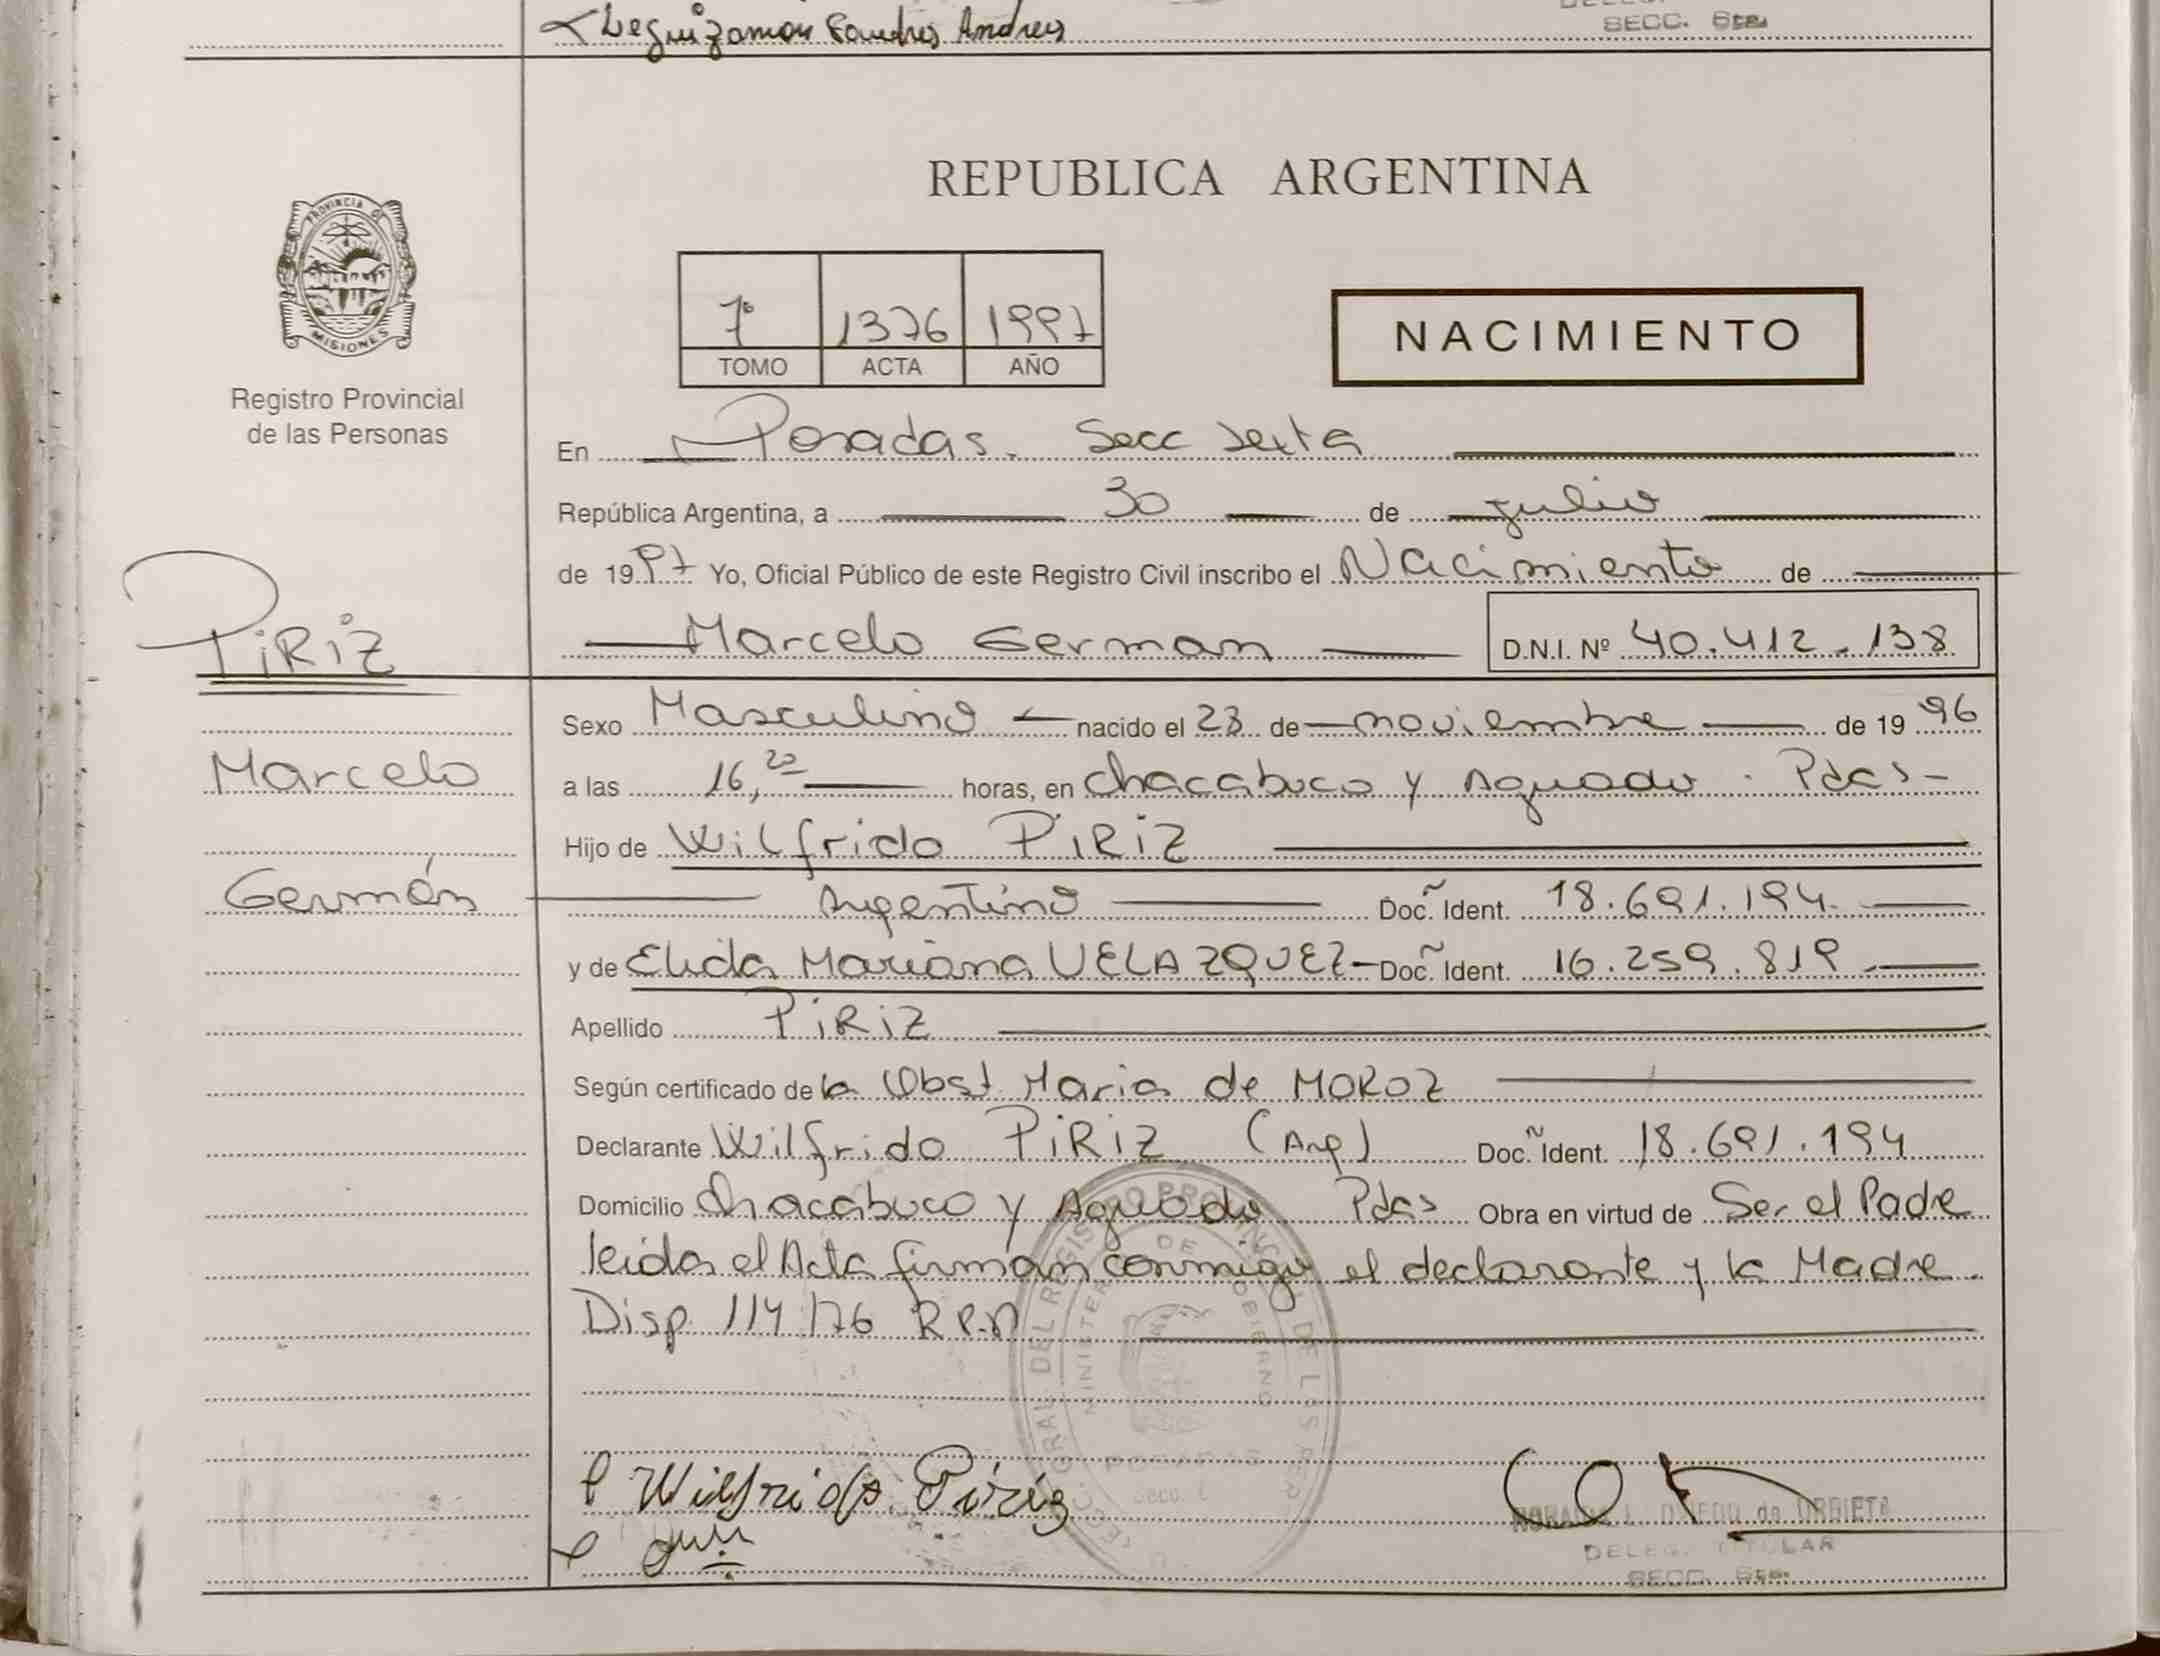 Leguizamon Sandres Andres
SECC. 6ta.
PROVINCIA DE
MISIONES
Registro Provincial
de las Personas
REPUBLICA ARGENTINA
7º 1376 1997
TOMO ACTA AÑO
NACIMIENTO
En Posadas. Secc Sexta
República Argentina, a 30 de julio
de 1997 Yo, Oficial Público de este Registro Civil inscribo el Nacimiento de
Marcelo German D.N.I. Nº 40.412.138
PiRiZ
Marcelo
Germán
Sexo Masculino nacido el 23 de noviembre de 1996
a las 16,20 horas, en Chacabuco y Aguado - Pdas-
Hijo de Wilfrido PiRiZ
Argentino Docñ. Ident. 18.691.194
y de Elida Mariana VELAZQUEZ- Docñ. Ident. 16.259.819
Apellido PiRiZ
Según certificado de la Obst Maria de MOROZ
Declarante Wilfrido PiRiZ (Arg) Docñ. Ident. 18.691.194
Domicilio Chacabuco y Aguado Pdas Obra en virtud de Ser el Padre
leida el Acta firman conmigo el declarante y la Madre.
Disp 114/76 R.P.N
Wilfrido Piriz
DEL REGISTRO PROVINCIAL DE LAS PER
MINISTERIO DE GOBIERNO
POSADAS
de URBIETA
DELEG. TITULAR
SECC. 6ta.